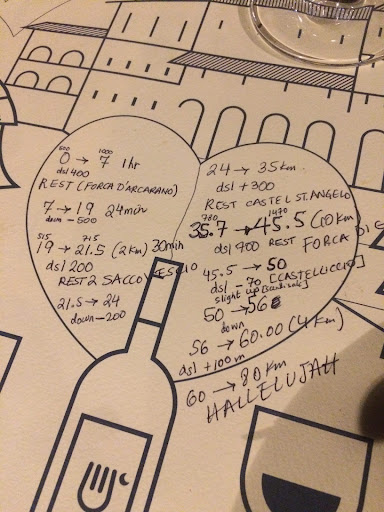 600 1000
0 → 7 1hr
dsl 400
REST (FORCA D'ARCARANO)
7 → 19 24min
down - 500
515 715
19 → 21.5 (2km) 30min
dsl 200
REST 2 SACCOVESCIO
21.5 → 24
down - 200
24 → 35km
dsl +300
REST CASTEL ST. ANGELO
780 1470
35.7 → 45.5 (10km)
dsl 700 REST FORCA DI G
45.5 → 50
dsl - 70 [CASTELLUCCIO]
slight up
50 → 56
down
56 → 60.00 (4km)
dsl +100m
60 → 80km
HALLELUJAH